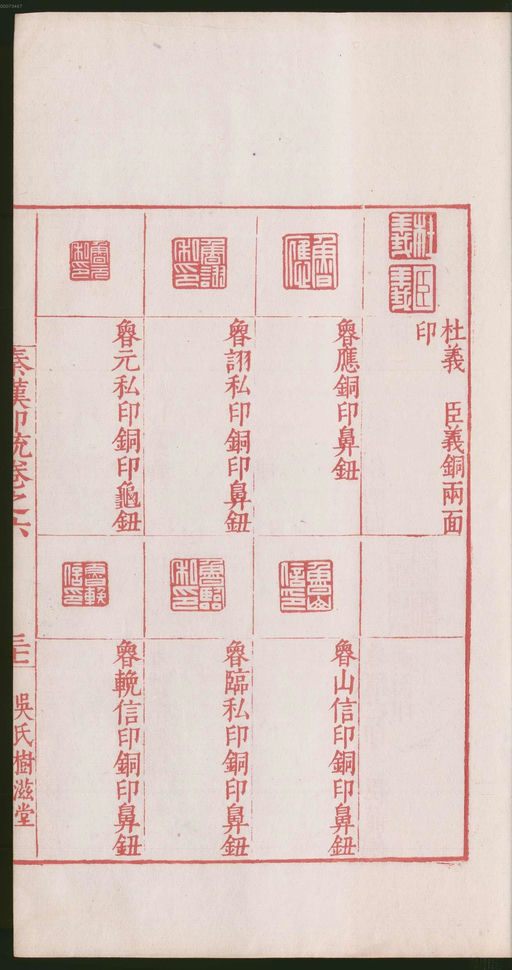 杜義　臣義銅兩面
印
魯應銅印鼻鈕
魯詡私印銅印鼻鈕
魯元私印銅印龜鈕
魯山信印銅印鼻鈕
魯臨私印銅印鼻鈕
魯輓信印銅印鼻鈕
秦漢印統卷之六
吳氏樹滋堂
00073467